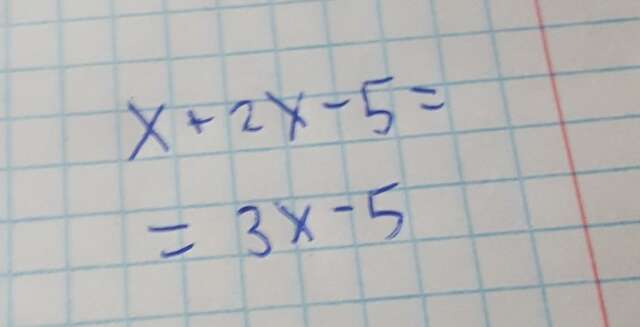 x + 2x - 5 =
= 3x - 5